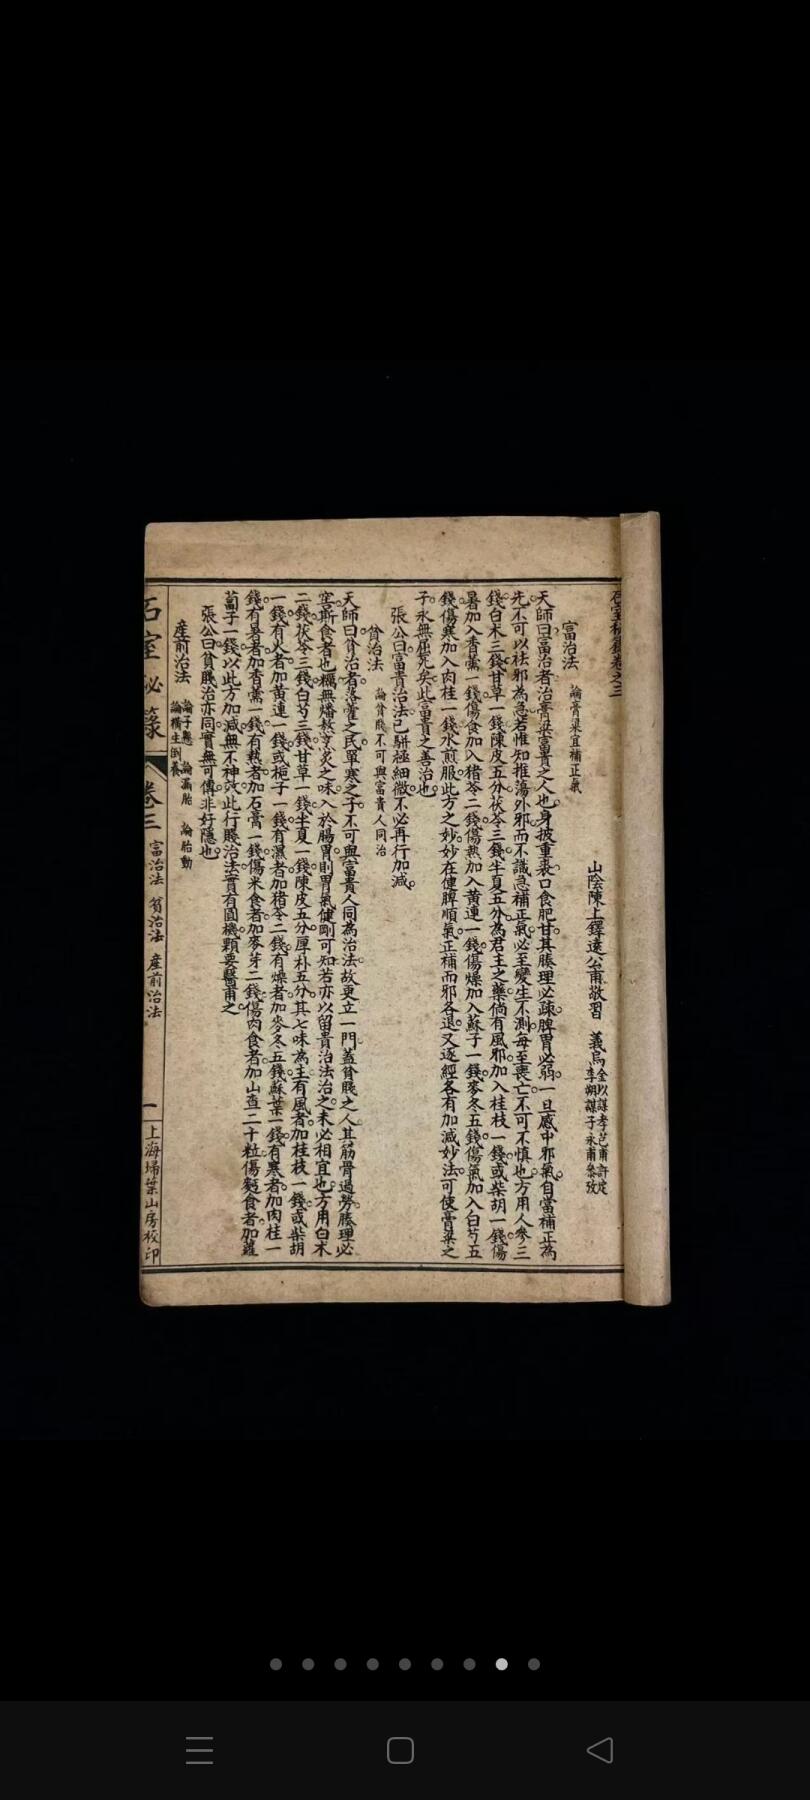 石室秘錄卷之三
山陰陳士鐸遠公甫敬習 義烏金以謀孝芑甫許定 李朔謀子永甫叅攷
富治法 論膏梁宜補正氣
天師曰富治者治膏梁富貴之人也身披重裘口食肥甘其腠理必疎脾胃必弱一旦感中邪氣自當補正為
先不可以祛邪為急若惟知推蕩外邪而不識急補正氣必至變生不測每至喪亡不可不慎也方用人參三
錢白朮三錢甘草一錢陳皮五分茯苓三錢半夏五分為君主之藥倘有風邪加入桂枝一錢或柴胡一錢傷
暑加入香薷一錢傷食加入猪苓二錢傷熱加入黃連一錢傷燥加入蘇子一錢麥冬五錢傷氣加入白芍五
錢傷寒加入肉桂一錢水煎服此方之妙妙在健脾順氣正補而邪各退又逐經各有加減妙法可使膏梁之
子永無屈死矣此富貴之善治也
張公曰富貴治法已駢極細微不必再行加減
貧治法 論貧賤不可與富貴人同治
天師曰貧治者藜藿之民單寒之子不可與富貴人同為治法故更立一門蓋貧賤之人其筋骨過勞腠理必
密所食者也糲無燔熬烹炙之味入於腸胃則胃氣健剛可知若亦以留貴治法治之未必相宜也方用白朮
二錢茯苓三錢白芍三錢甘草一錢半夏一錢陳皮五分厚朴五分其七味為主有風者加桂枝一錢或柴胡
一錢有火者加黃連一錢或梔子一錢有濕者加猪苓二錢有燥者加麥冬五錢蘇葉一錢有寒者加肉桂一
錢有暑者加香薷一錢有熱者加石膏一錢傷米食者加麥芽二錢傷肉食者加山查二十粒傷麪食者加蘿
蔔子一錢以此方加減無不神效此行賤治法實有圓機顆要醫甫之
張公曰貧賤治亦同實無可傳非好隱也
產前治法 論子懸 論漏胎 論胎動
論橫生倒養
石室秘籙 卷三 富治法 貧治法 產前治法 一 上海埽葉山房校印